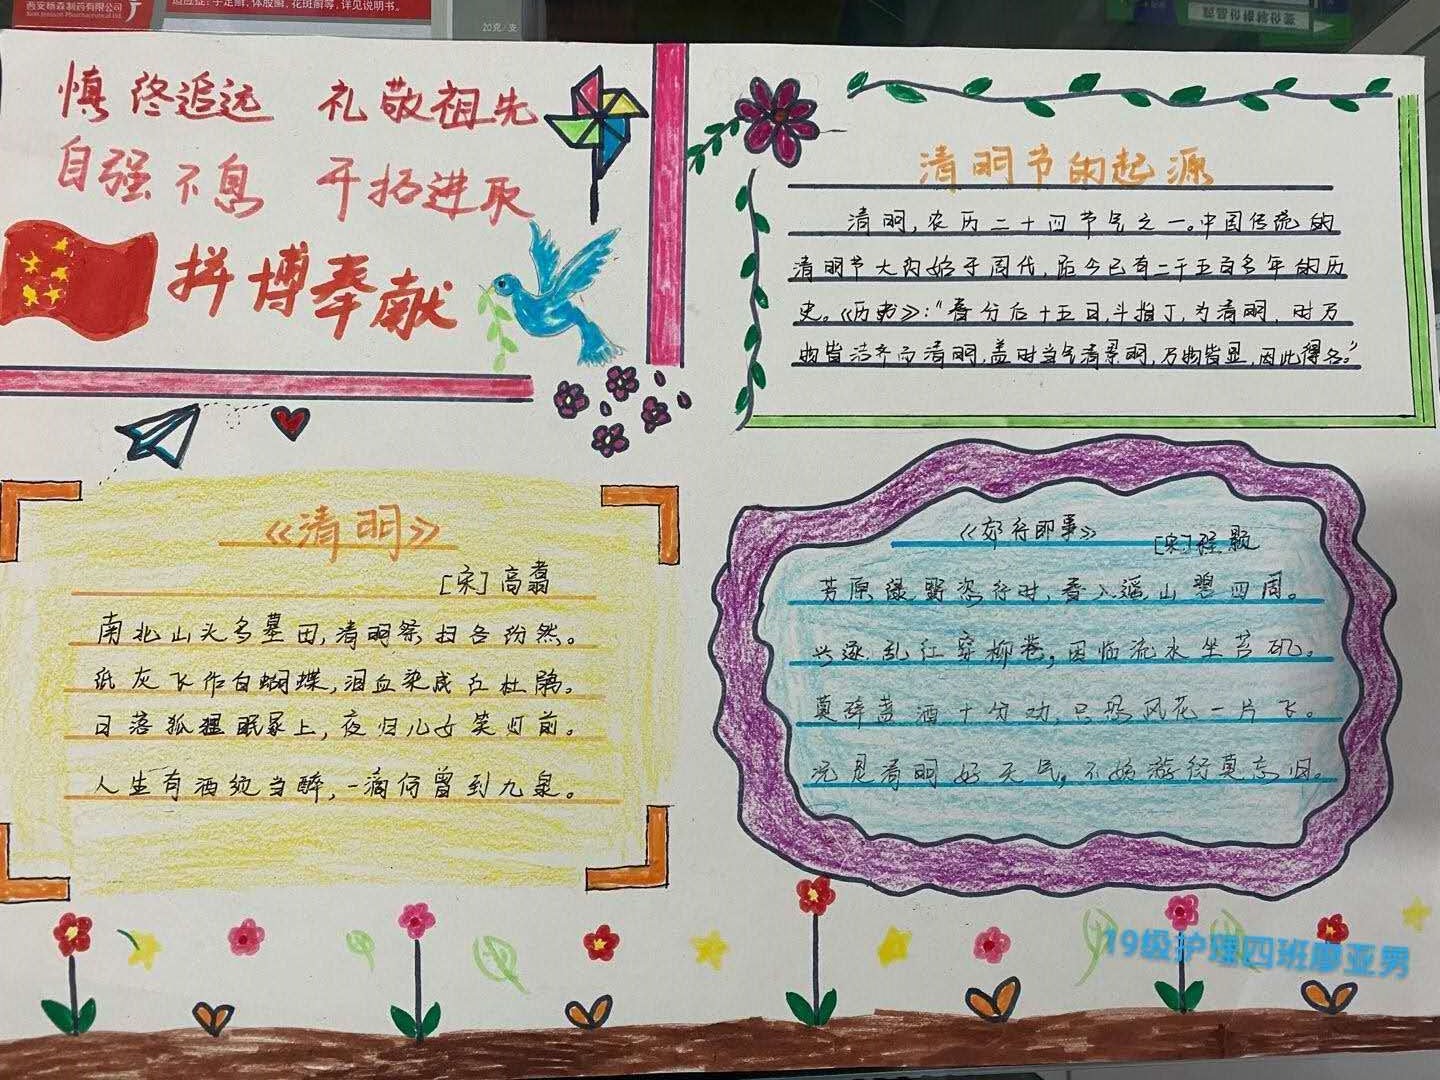 西安杨森制药有限公司
Xian Janssen Pharmaceutical Ltd.
适应症：手足癣，体股癣，花斑癣等，详见说明书。
20克/支
慎终追远 礼敬祖先
自强不息 开拓进取
拼博奉献
清明节的起源
清明，农历二十四节气之一。中国传统的
清明节大约始于周代，距今已有二千五百多年的历
史。《历书》："春分后十五日，斗指丁，为清明，时万
物皆洁齐而清明，盖时当气清景明，万物皆显，因此得名。"
《清明》
[宋]高翥
南北山头多墓田，清明祭扫各纷然。
纸灰飞作白蝴蝶，泪血染成红杜鹃。
日落狐狸眠冢上，夜归儿女笑灯前。
人生有酒须当醉，一滴何曾到九泉。
《郊行即事》
[宋]程颢
芳原绿野恣行时，春入遥山碧四周。
兴逐乱红穿柳巷，因临流水坐苔矶。
莫辞盏酒十分劝，只恐风花一片飞。
况是清明好天气，不妨游衍莫忘归。
19级护理四班廖亚男